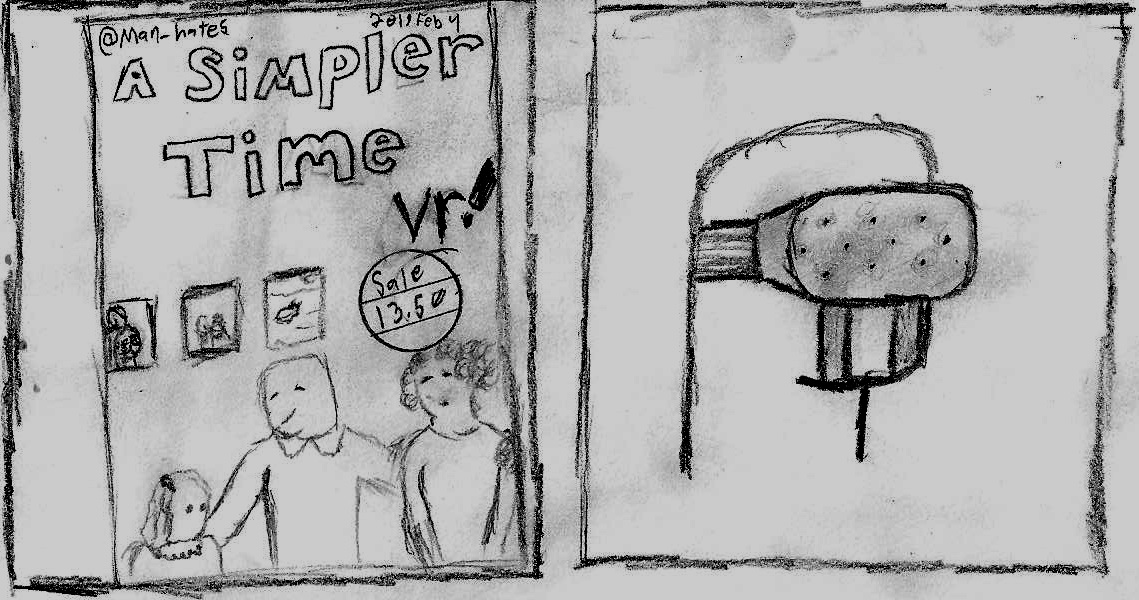 @Man_hates
2011 Feb 4
A Simpler
Time
Vr!
Sale
13.50